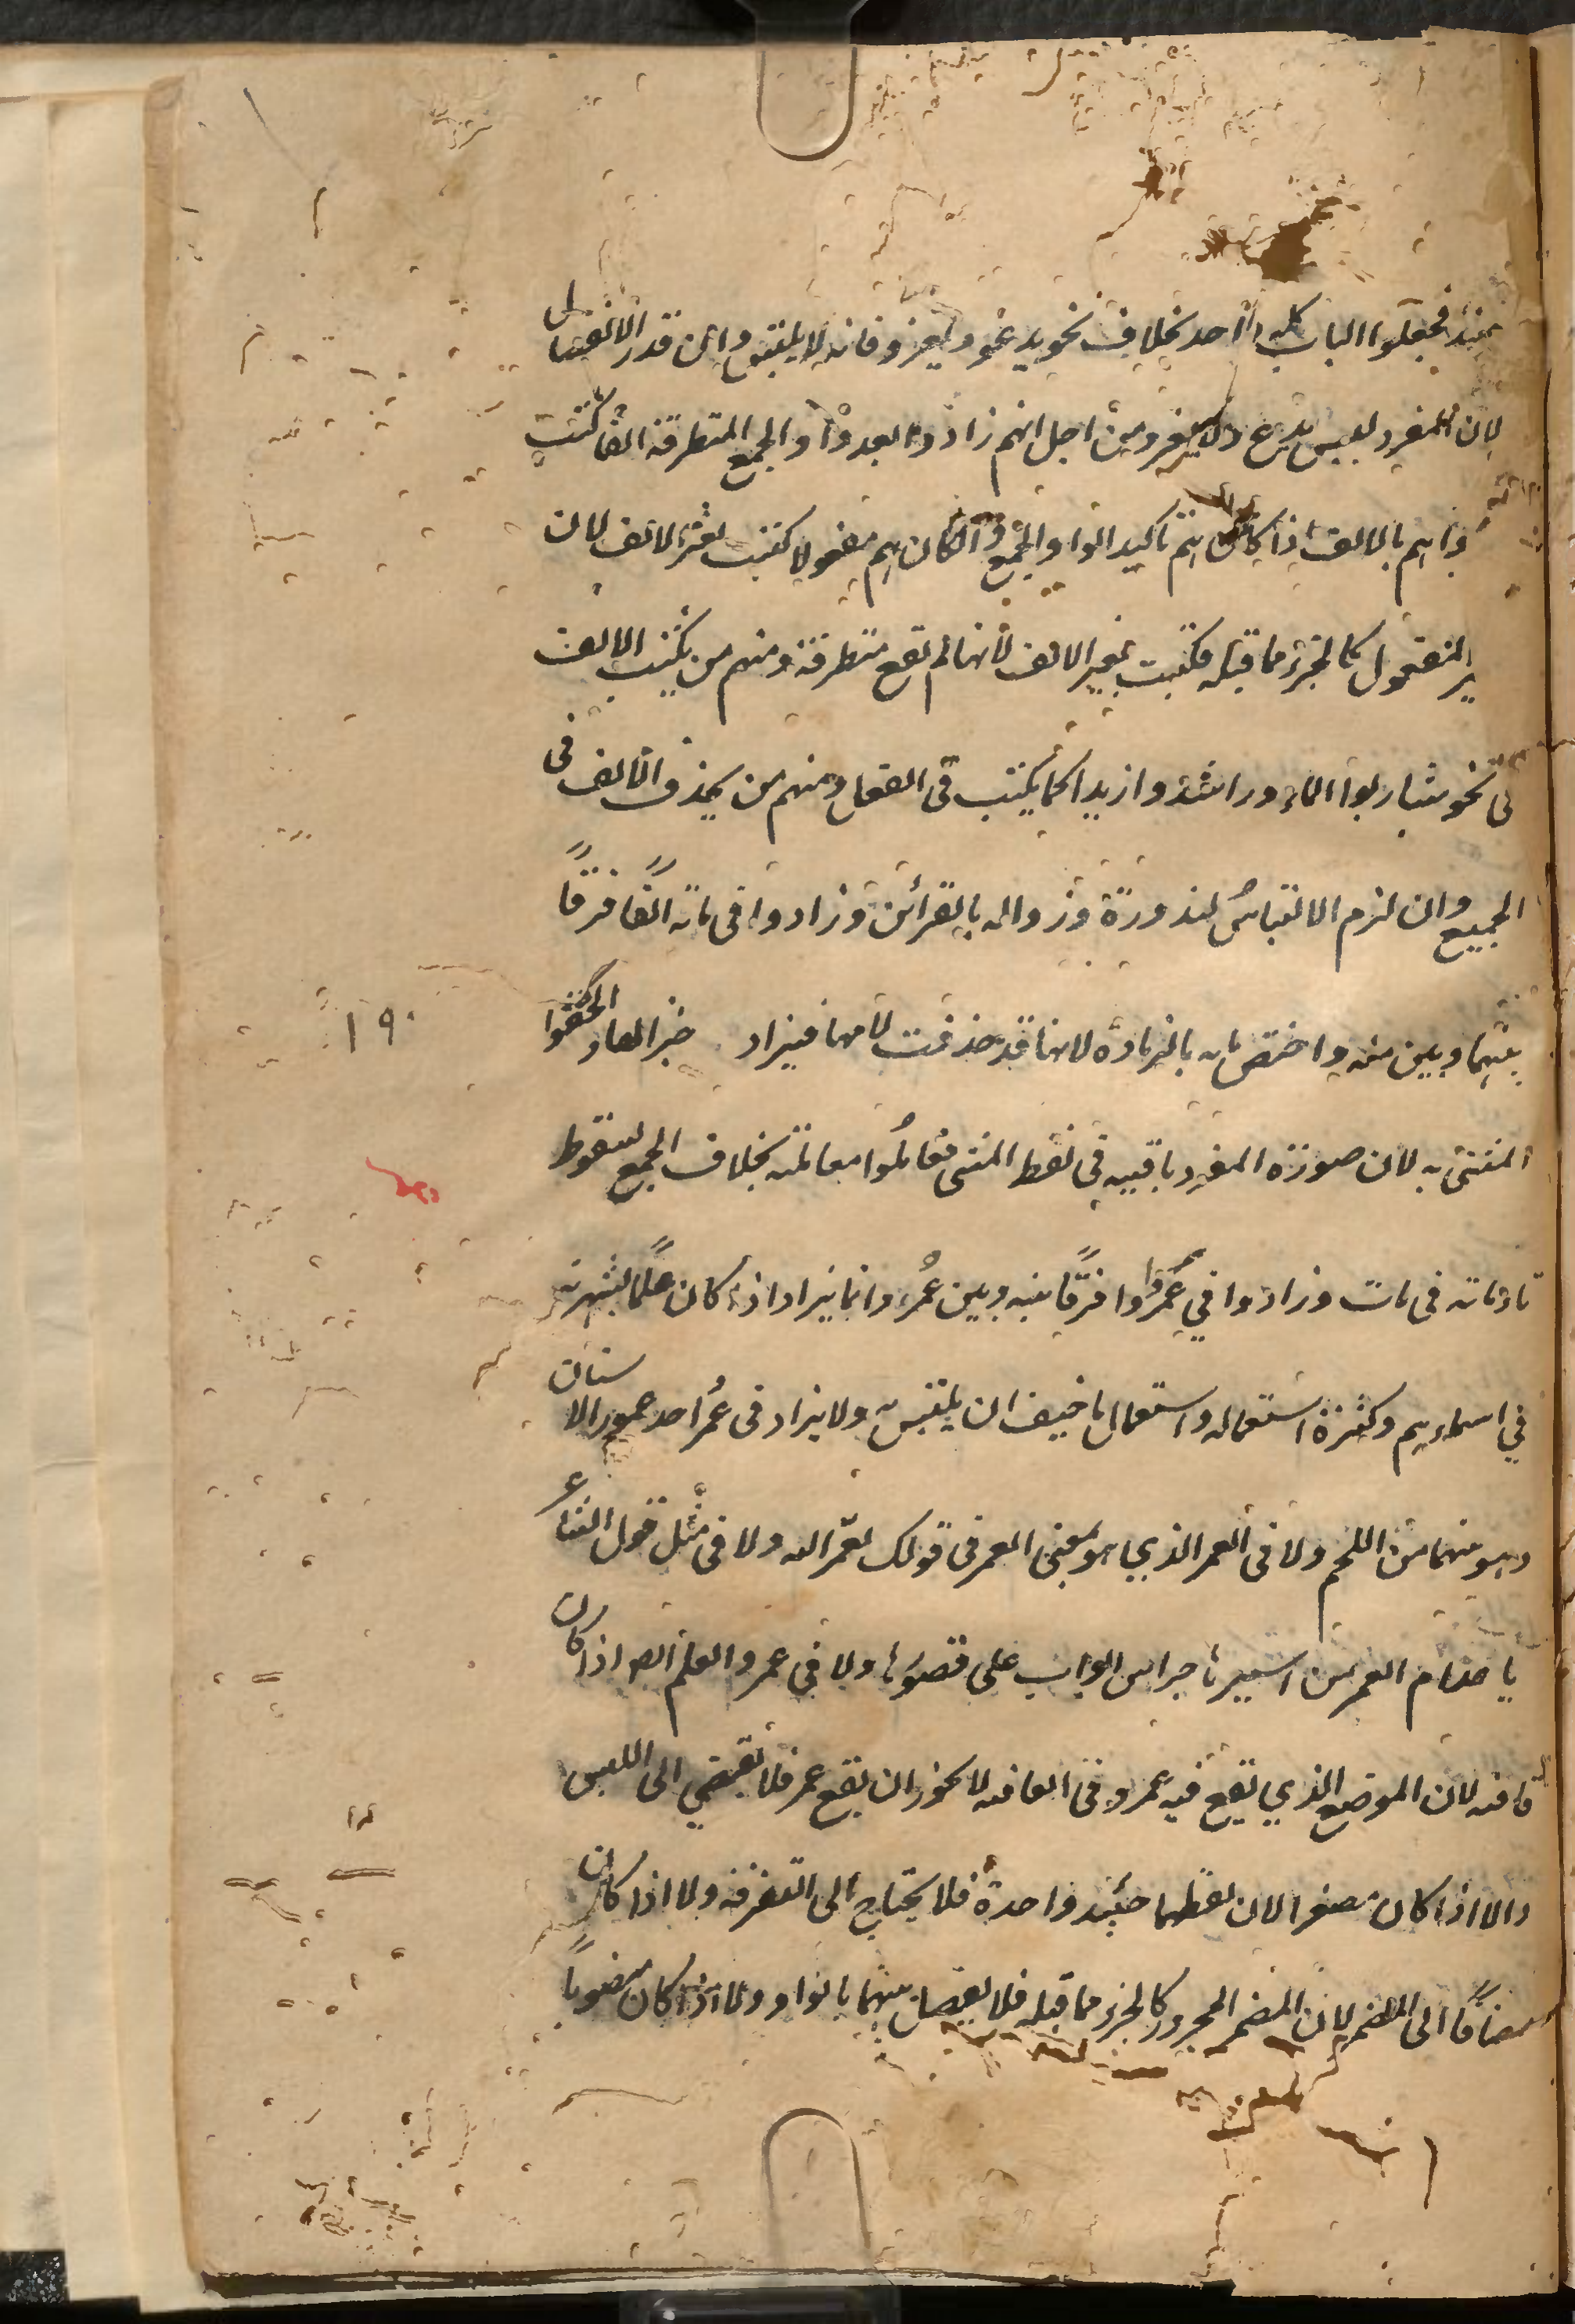 فجعلوا الباب كله واحد بخلاف نحو يدعو ويغزو فانه لا يلتبس وان قدر الانفصال
لان المفرد ليس يدع ولا يغز ومن اجل انهم زادوا بعد واو الجمع المتطرفة الفا كتبت
هم بالالف اذا كان هم تأكيد الواو الجمع وان كان هم مفعولا كتبت بغير الالف لان
المفعول كالجزء مما قبله فكتبت بغير الالف لأنها لم تقع متطرفة ومنهم من يكتب الالف
في نحو شاربوا الماء وراشدوا زيدا كما يكتب في الفعل ومنهم من يحذف الألف في
الجميع وان لزم الالتباس لندورة وزواله بالقرائن وزادوا في مائة الفا فرقا
بينهما وبين منه واختص مايه بالزيادة لانها قد حذفت لامها فيزاد خبرا لها والحقوا
المثنى به لان صورة المفرد باقيه في لفظ المثنى فعاملوا معاملته بخلاف الجمع لسقوط
تاء مائة في مات وزادوا في عمرو واوا فرقا بينه وبين عمر وانما يزاد اذا كان علما لشهرته
في اسمائهم وكثرة استعماله واستعمال ما خيف ان يلتبس به ولا يزاد في عمر احد عمور الاسنان
وهو منهما من اللحم ولا في العمر الذي هو بمعنى العمر في قولك لعمر الله ولا في مثل قول الشاعر
يا عذام العمر من اسيرها حراس ابواب على قصورها ولا في عمرو العلم ايضا اذا كان
قافيه لان الموضع الذي يقع فيه عمرو في القافيه لا يجوز ان يقع عمر فلا يفضي الى اللبس
والا اذا كان مصغرا لان لفظهما حينئذ واحدة فلا يحتاج الى التفرقه ولا اذا كان
مضافا الى المضمر لان المضمر المجرور كالجزء مما قبله فلا يفصل بينهما بالواو ولا اذا كان منصوبا
١٩٠